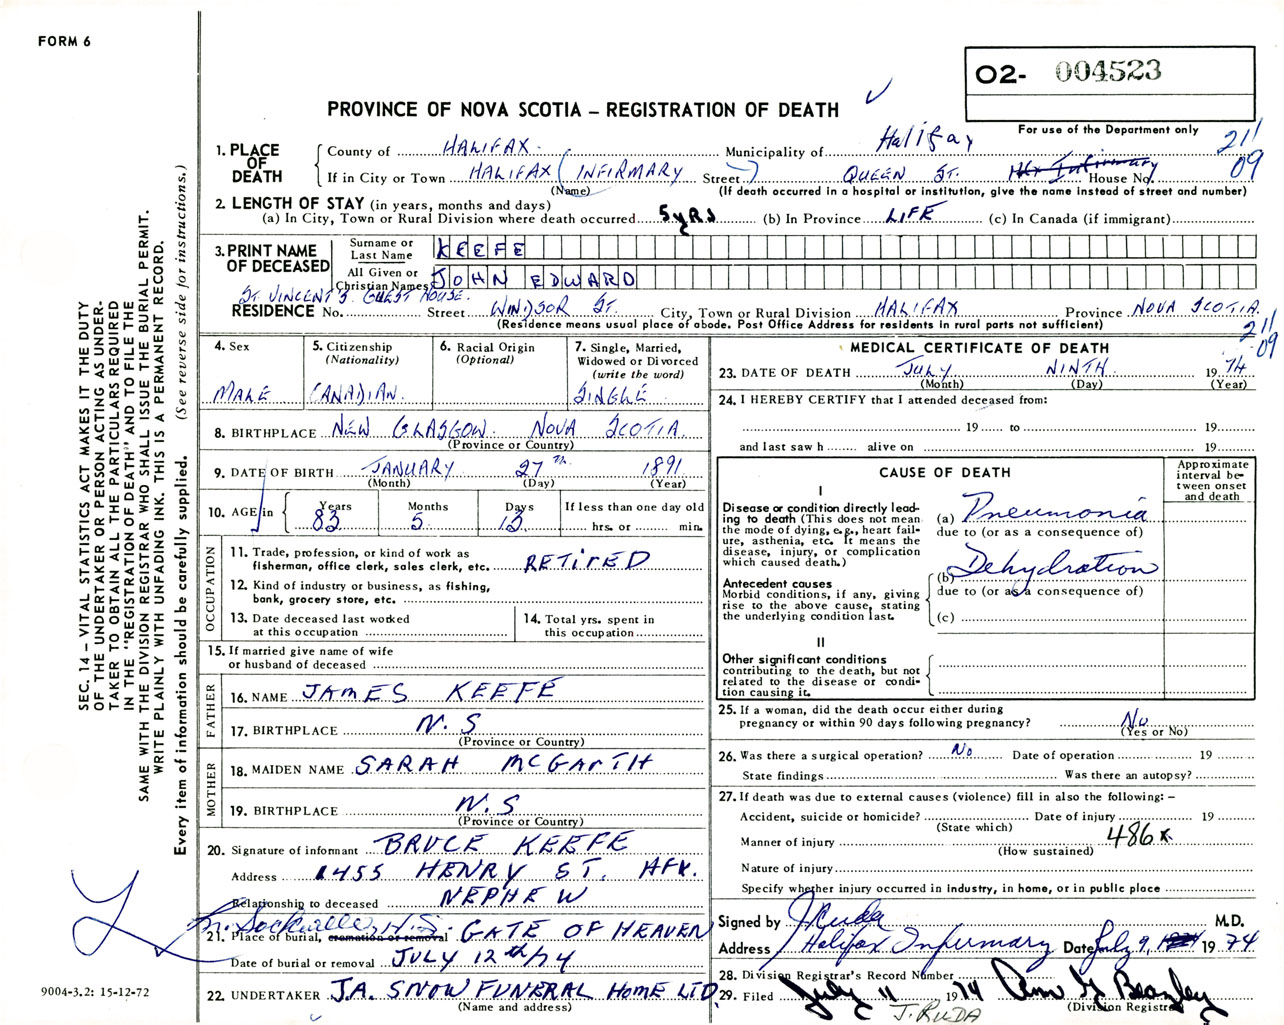 FORM 6
O2- 004523
PROVINCE OF NOVA SCOTIA – REGISTRATION OF DEATH
For use of the Department only
21/09
1. PLACE OF DEATH
County of HALIFAX. Municipality of Halifax
If in City or Town HALIFAX (INFIRMARY) Street QUEEN ST. House No.
(Name) (If death occurred in a hospital or institution, give the name instead of street and number)
2. LENGTH OF STAY (in years, months and days)
(a) In City, Town or Rural Division where death occurred 5 yRS (b) In Province LIFE (c) In Canada (if immigrant)
3. PRINT NAME OF DECEASED
Surname or Last Name KEEFE
All Given or Christian Names JOHN EDWARD
ST. VINCENT'S GUEST HOUSE.
RESIDENCE No. Street WINDSOR ST. City, Town or Rural Division HALIFAX Province NOVA SCOTIA.
(Residence means usual place of abode. Post Office Address for residents in rural parts not sufficient)
21/09
4. Sex MALE
5. Citizenship (Nationality) CANADIAN.
6. Racial Origin (Optional)
7. Single, Married, Widowed or Divorced (write the word) SINGLE
8. BIRTHPLACE NEW GLASGOW. NOVA SCOTIA.
(Province or Country)
9. DATE OF BIRTH JANUARY 27TH 1891
(Month) (Day) (Year)
10. AGE in Years 83 Months 5 Days 13 If less than one day old hrs. or min.
OCCUPATION
11. Trade, profession, or kind of work as fisherman, office clerk, sales clerk, etc. RETIRED
12. Kind of industry or business, as fishing, bank, grocery store, etc.
13. Date deceased last worked at this occupation
14. Total yrs. spent in this occupation
15. If married give name of wife or husband of deceased
FATHER
16. NAME JAMES KEEFE
17. BIRTHPLACE N.S
(Province or Country)
MOTHER
18. MAIDEN NAME SARAH MCGARTH
19. BIRTHPLACE N.S
(Province or Country)
20. Signature of informant BRUCE KEEFE
Address 1455 HENRY ST. HFX.
Relationship to deceased NEPHEW
Sackville, N.S.
21. Place of burial, cremation or removal GATE OF HEAVEN
Date of burial or removal JULY 12th/74
22. UNDERTAKER J.A. SNOW FUNERAL HOME LTD.
(Name and address)
MEDICAL CERTIFICATE OF DEATH
23. DATE OF DEATH JULY NINTH 1974
(Month) (Day) (Year)
24. I HEREBY CERTIFY that I attended deceased from:
19 to 19
and last saw h alive on 19
CAUSE OF DEATH
Approximate interval between onset and death
I
Disease or condition directly leading to death (This does not mean the mode of dying, e.g., heart failure, asthenia, etc. It means the disease, injury, or complication which caused death.)
(a) Pneumonia
due to (or as a consequence of)
Antecedent causes
Morbid conditions, if any, giving rise to the above cause, stating the underlying condition last.
(b) Dehydration
due to (or as a consequence of)
(c)
II
Other significant conditions contributing to the death, but not related to the disease or condition causing it.
25. If a woman, did the death occur either during pregnancy or within 90 days following pregnancy? No
(Yes or No)
26. Was there a surgical operation? No Date of operation 19
State findings Was there an autopsy?
27. If death was due to external causes (violence) fill in also the following: –
Accident, suicide or homicide? Date of injury 19
(State which)
Manner of injury 486x
(How sustained)
Nature of injury
Specify whether injury occurred in industry, in home, or in public place
Signed by J Ruda M.D.
Address Halifax Infirmary Date July 9, 1974
28. Division Registrar's Record Number
29. Filed July 11 1974
(Division Registrar)
J. RUDA
SEC. 14 – VITAL STATISTICS ACT MAKES IT THE DUTY
OF THE UNDERTAKER OR PERSON ACTING AS UNDER-
TAKER TO OBTAIN ALL THE PARTICULARS REQUIRED
IN THE "REGISTRATION OF DEATH" AND TO FILE THE
SAME WITH THE DIVISION REGISTRAR WHO SHALL ISSUE THE BURIAL PERMIT.
WRITE PLAINLY WITH UNFADING INK. THIS IS A PERMANENT RECORD.
Every item of information should be carefully supplied. (See reverse side for instructions.)
9004-3.2: 15-12-72